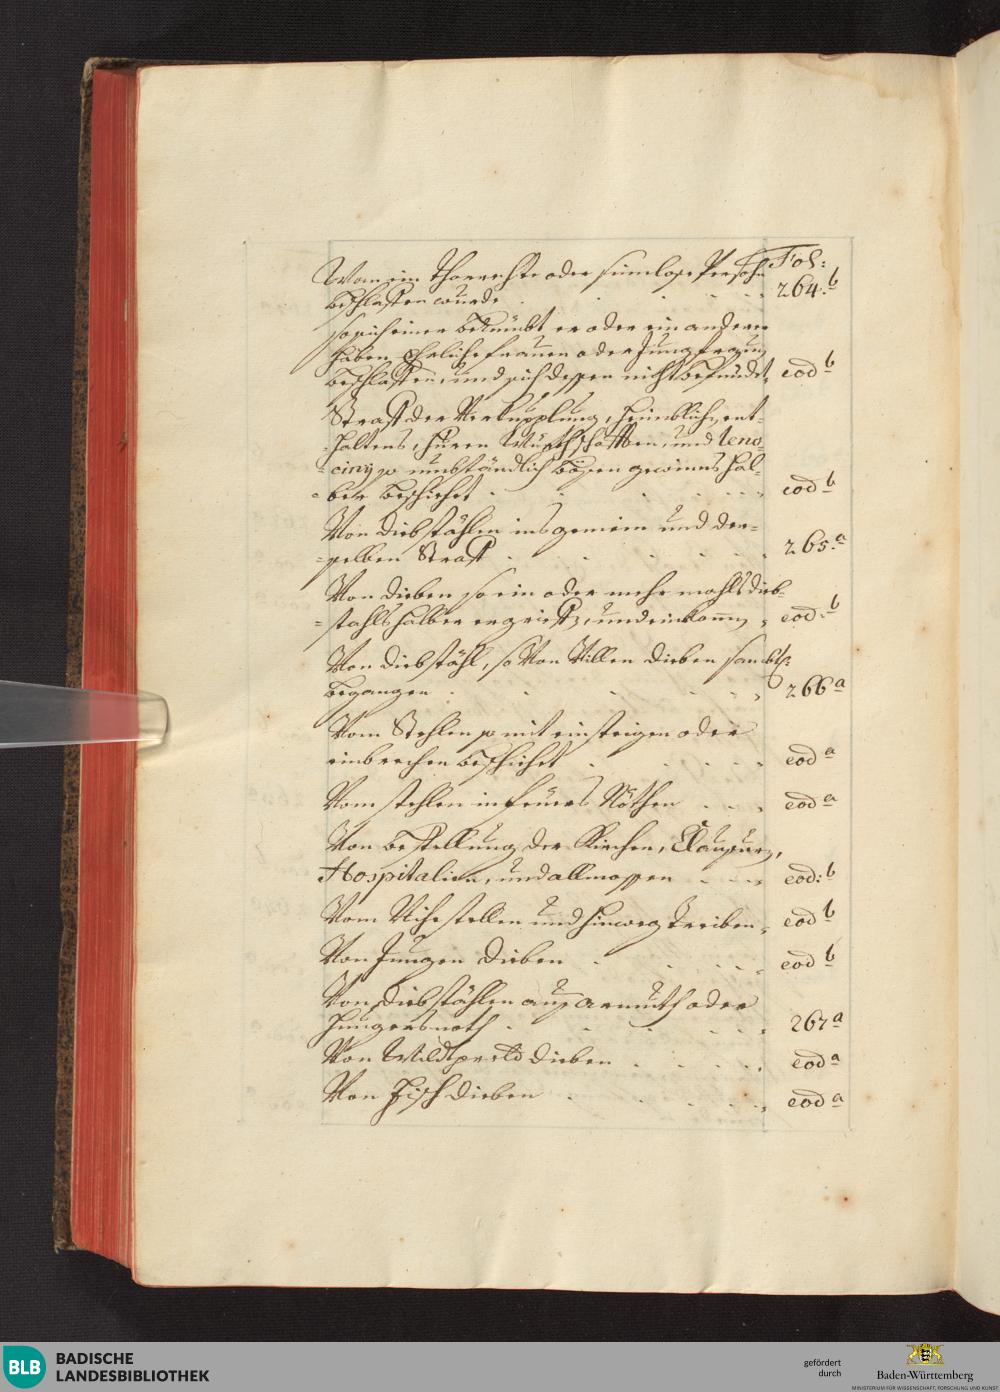 Fol:
Wan ein thorrechte oder sinnlose Persohn
beschlaffen wurde . . . . . 264.b
So sich einer berümbt er oder ein anderer
haben Ehrliche frauen oder Jungfrauen
beschlaffen, und sich dessen nicht befindet, eod b
Straff der Verkupplung, heimblich ent-
haltens, huren Würthschafften, und leno-
cinÿ so umbständlich bösen gewinns hal-
-ber beschiehet . . . . . eod b
Von diebstählen ins gemein und der-
-selben Straff . . . . . 265.a
Von dieben so ein oder mehr mahls dieb-
-stahls halber ergriffen, und einkomen, eod. b
Von diebstähl, so Von Villen dieben sambtl:
begangen . . . . . 266 a
Vom Stehlen so mit einsteigen oder
einbrechen beschiehet . . . . . eod a
Vom stehlen in feuers Nöthen . . . eod a
Von bestellung der Kirchen, Clausuren,
Hospitalien, und allmossen . . . eod: b
Vom Vihe stellen und hinweg treiben, eod b
Von Jungen dieben . . . . . eod b
Von diebstählen aus armuth oder
hungersnoth . . . . . 267 a
Von Wildtpreth dieben . . . . eod a
Von Fisch dieben . . . . . eod a
BLB
BADISCHE
LANDESBIBLIOTHEK
gefördert
durch
Baden-Württemberg
MINISTERIUM FÜR WISSENSCHAFT, FORSCHUNG UND KUNST